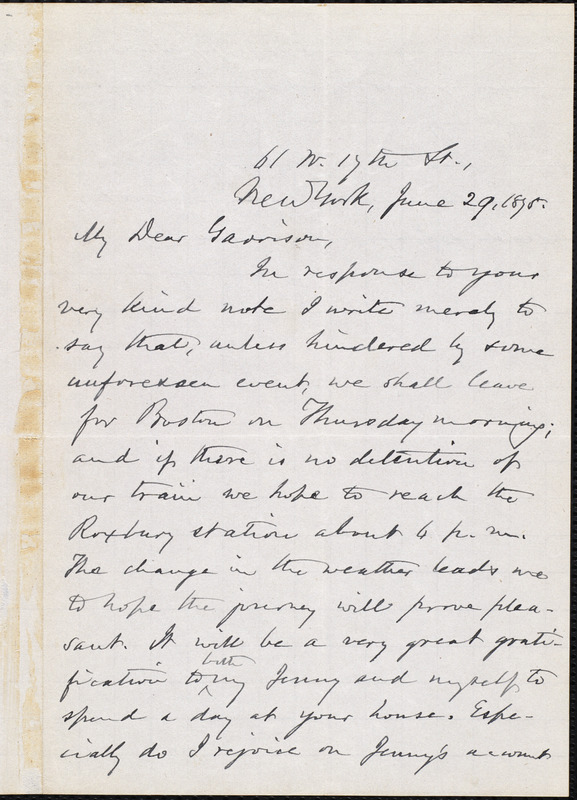 61 W. 17th St.,
New York, June 29, 1875.
My Dear Garrison,
In response to your
very kind note I write merely to
say that, unless hindered by some
unforeseen event, we shall leave
for Boston on Thursday morning;
and if there is no detention of
our train we hope to reach the
Roxbury station about 4 p. m.
The change in the weather leads me
to hope the journey will prove plea-
sant. It will be a very great grati-
fication to both my Jenny and myself to
spend a day at your house. Espe-
cially do I rejoice on Jenny's account